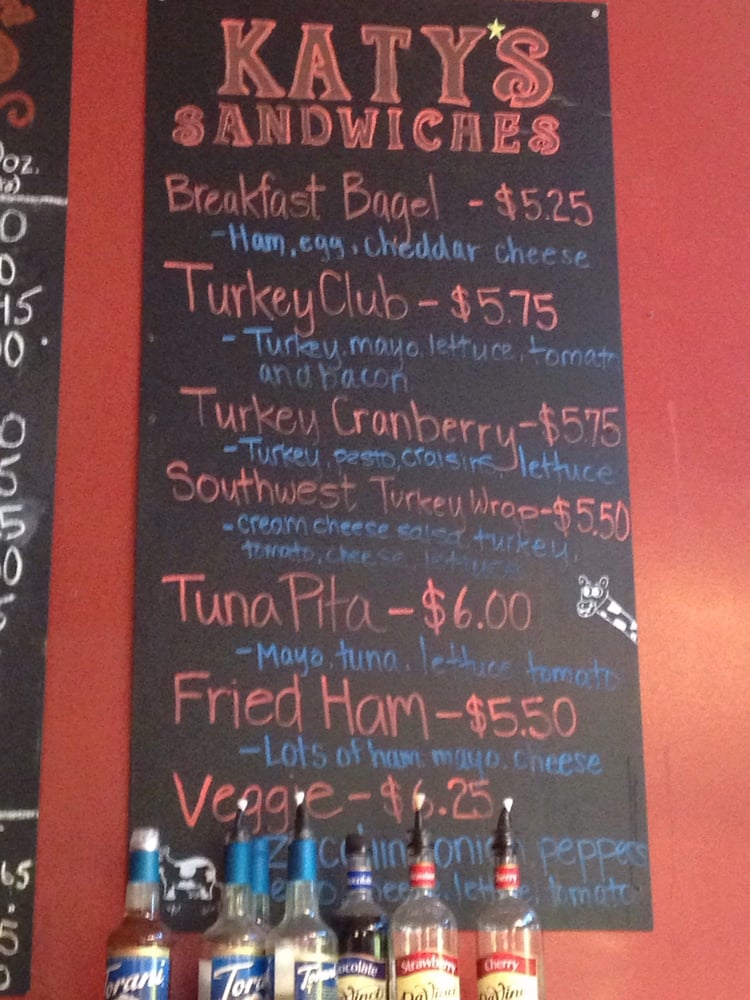 KATY'S
SANDWICHES
Breakfast Bagel - $5.25
- Ham, egg, cheddar cheese
Turkey Club - $5.75
- Turkey, mayo, lettuce, tomato
and bacon
Turkey Cranberry - $5.75
- Turkey, pesto, craisins, lettuce
Southwest Turkey Wrap - $5.50
- cream cheese salsa, turkey,
tomato, cheese, lettuce
Tuna Pita - $6.00
- Mayo, tuna, lettuce tomato
Fried Ham - $5.50
- Lots of ham, mayo, cheese
Veggie - $6.25
onion peppers
cheese, lettuce, tomato
oz.
0
0
45
0
0
5
5
0
65
Torani
Tora
Chocolate
DaVinci
Strawberry
DaVinci
Cherry
DaVinci